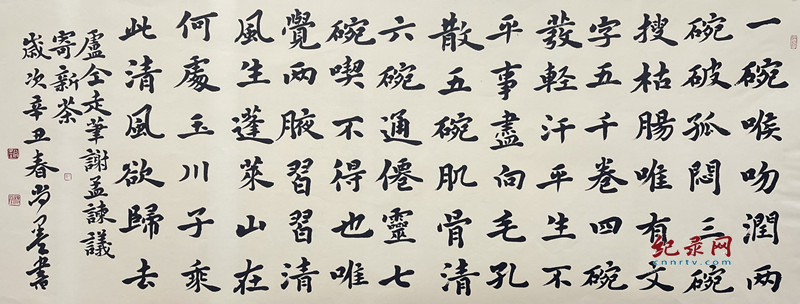 一碗喉吻潤兩
碗破孤悶三碗
搜枯腸唯有文
字五千卷四碗
發輕汗平生不
平事盡向毛孔
散五碗肌骨清
六碗通僊靈七
碗喫不得也唯
覺兩腋習習清
風生蓬萊山在
何處玉川子乘
此清風欲歸去
盧仝走筆謝孟諫議
寄新茶
歲次辛丑春尚書
纪录网
cnnrtv.com